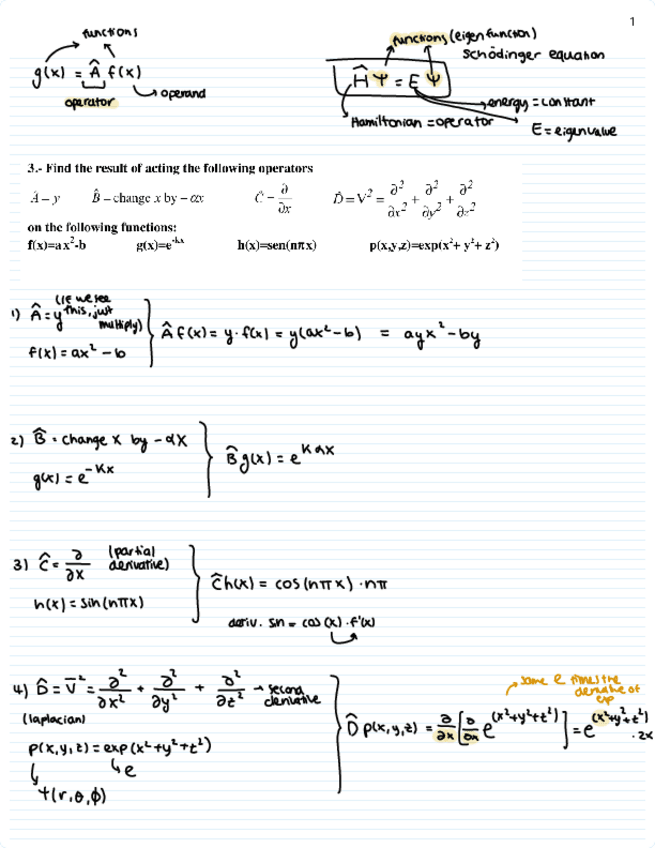 1
functions
g(x) = Â f(x)
operand
operator
functions (eigenfunction)
Schödinger equation
ĤΨ = EΨ
energy = constant
Hamiltonian = operator
E = eigenvalue
3.- Find the result of acting the following operators
Â – y B̂ – change x by – αx Ĉ – ∂/∂x D̂ = ∇² = ∂²/∂x² + ∂²/∂y² + ∂²/∂z²
on the following functions:
f(x)=ax²-b g(x)=e^-kx h(x)=sen(nπx) p(x,y,z)=exp(x²+ y²+ z²)
1) Â = y (if we see this, just multiply)
f(x) = ax² – b
Â f(x) = y · f(x) = y(ax² – b) = ayx² – by
2) B̂ = change x by – αx
g(x) = e^-Kx
B̂ g(x) = e^Kαx
3) Ĉ = ∂/∂x (partial derivative)
h(x) = sin(nπx)
Ĉh(x) = cos(nπx) · nπ
deriv. sin = cos(x) · f'(x)
4) D̂ = ∇² = ∂²/∂x² + ∂²/∂y² + ∂²/∂z² → second derivative
(laplacian)
p(x,y,z) = exp(x² + y² + z²)
e
+(r,θ,ϕ)
same e times the derivative of exp
D̂ p(x,y,z) = ∂/∂x [∂/∂x e^(x²+y²+z²)] = e^(x²+y²+z²) · 2x